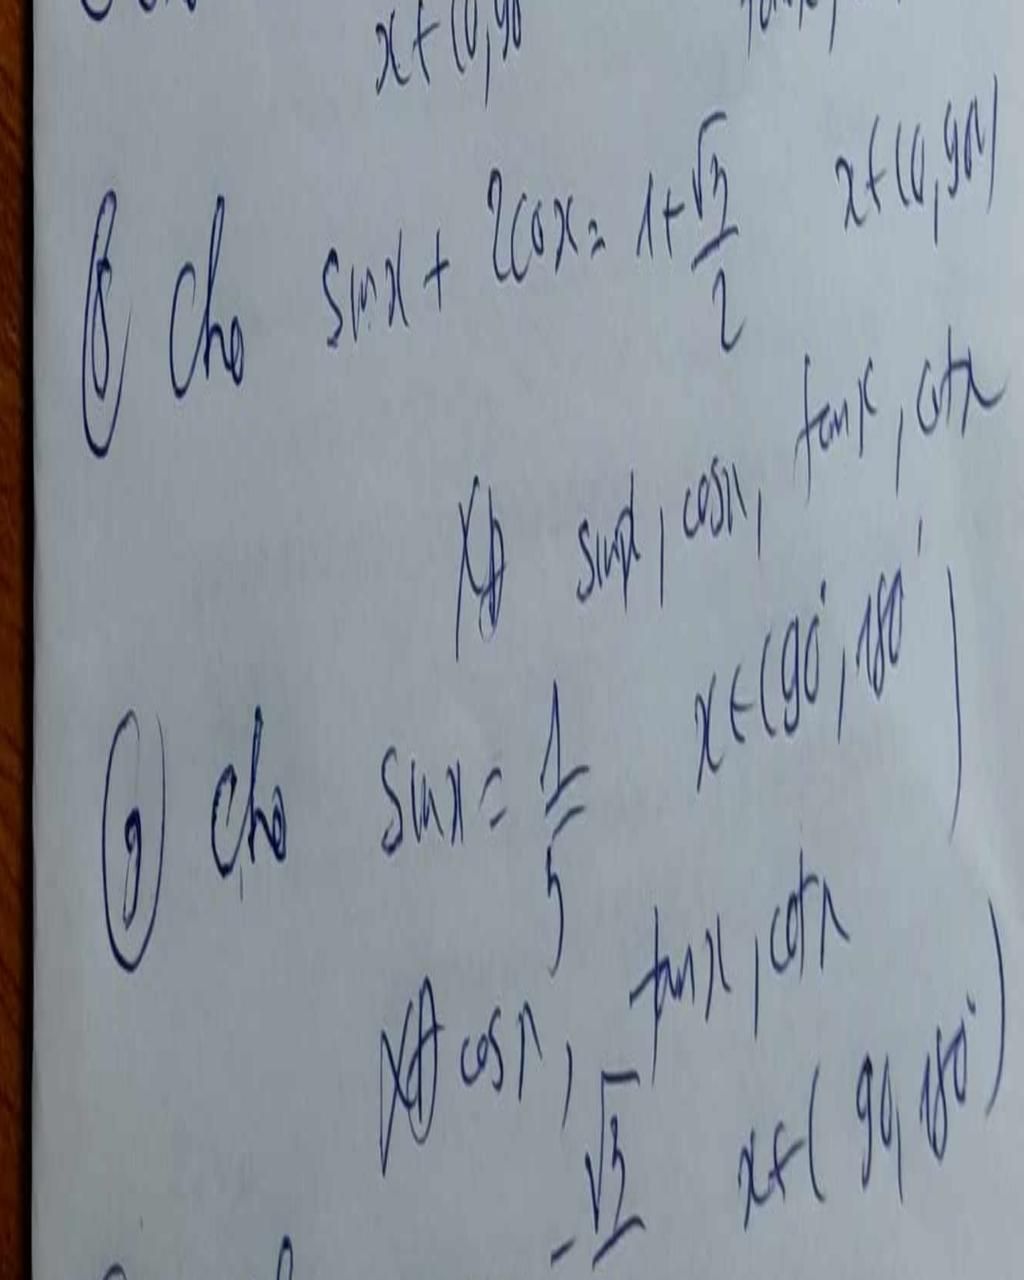 x ∈ (0, 90
⑧ Cho sinx + 2cosx = 1 + √3/2 x ∈ (0, 90)
XĐ sinx, cosx, tanx, cotx
⑨ Cho sinx = 1/5 x ∈ (90°, 180°)
XĐ cosx, tanx, cotx
-√3 x ∈ (90, 180°)